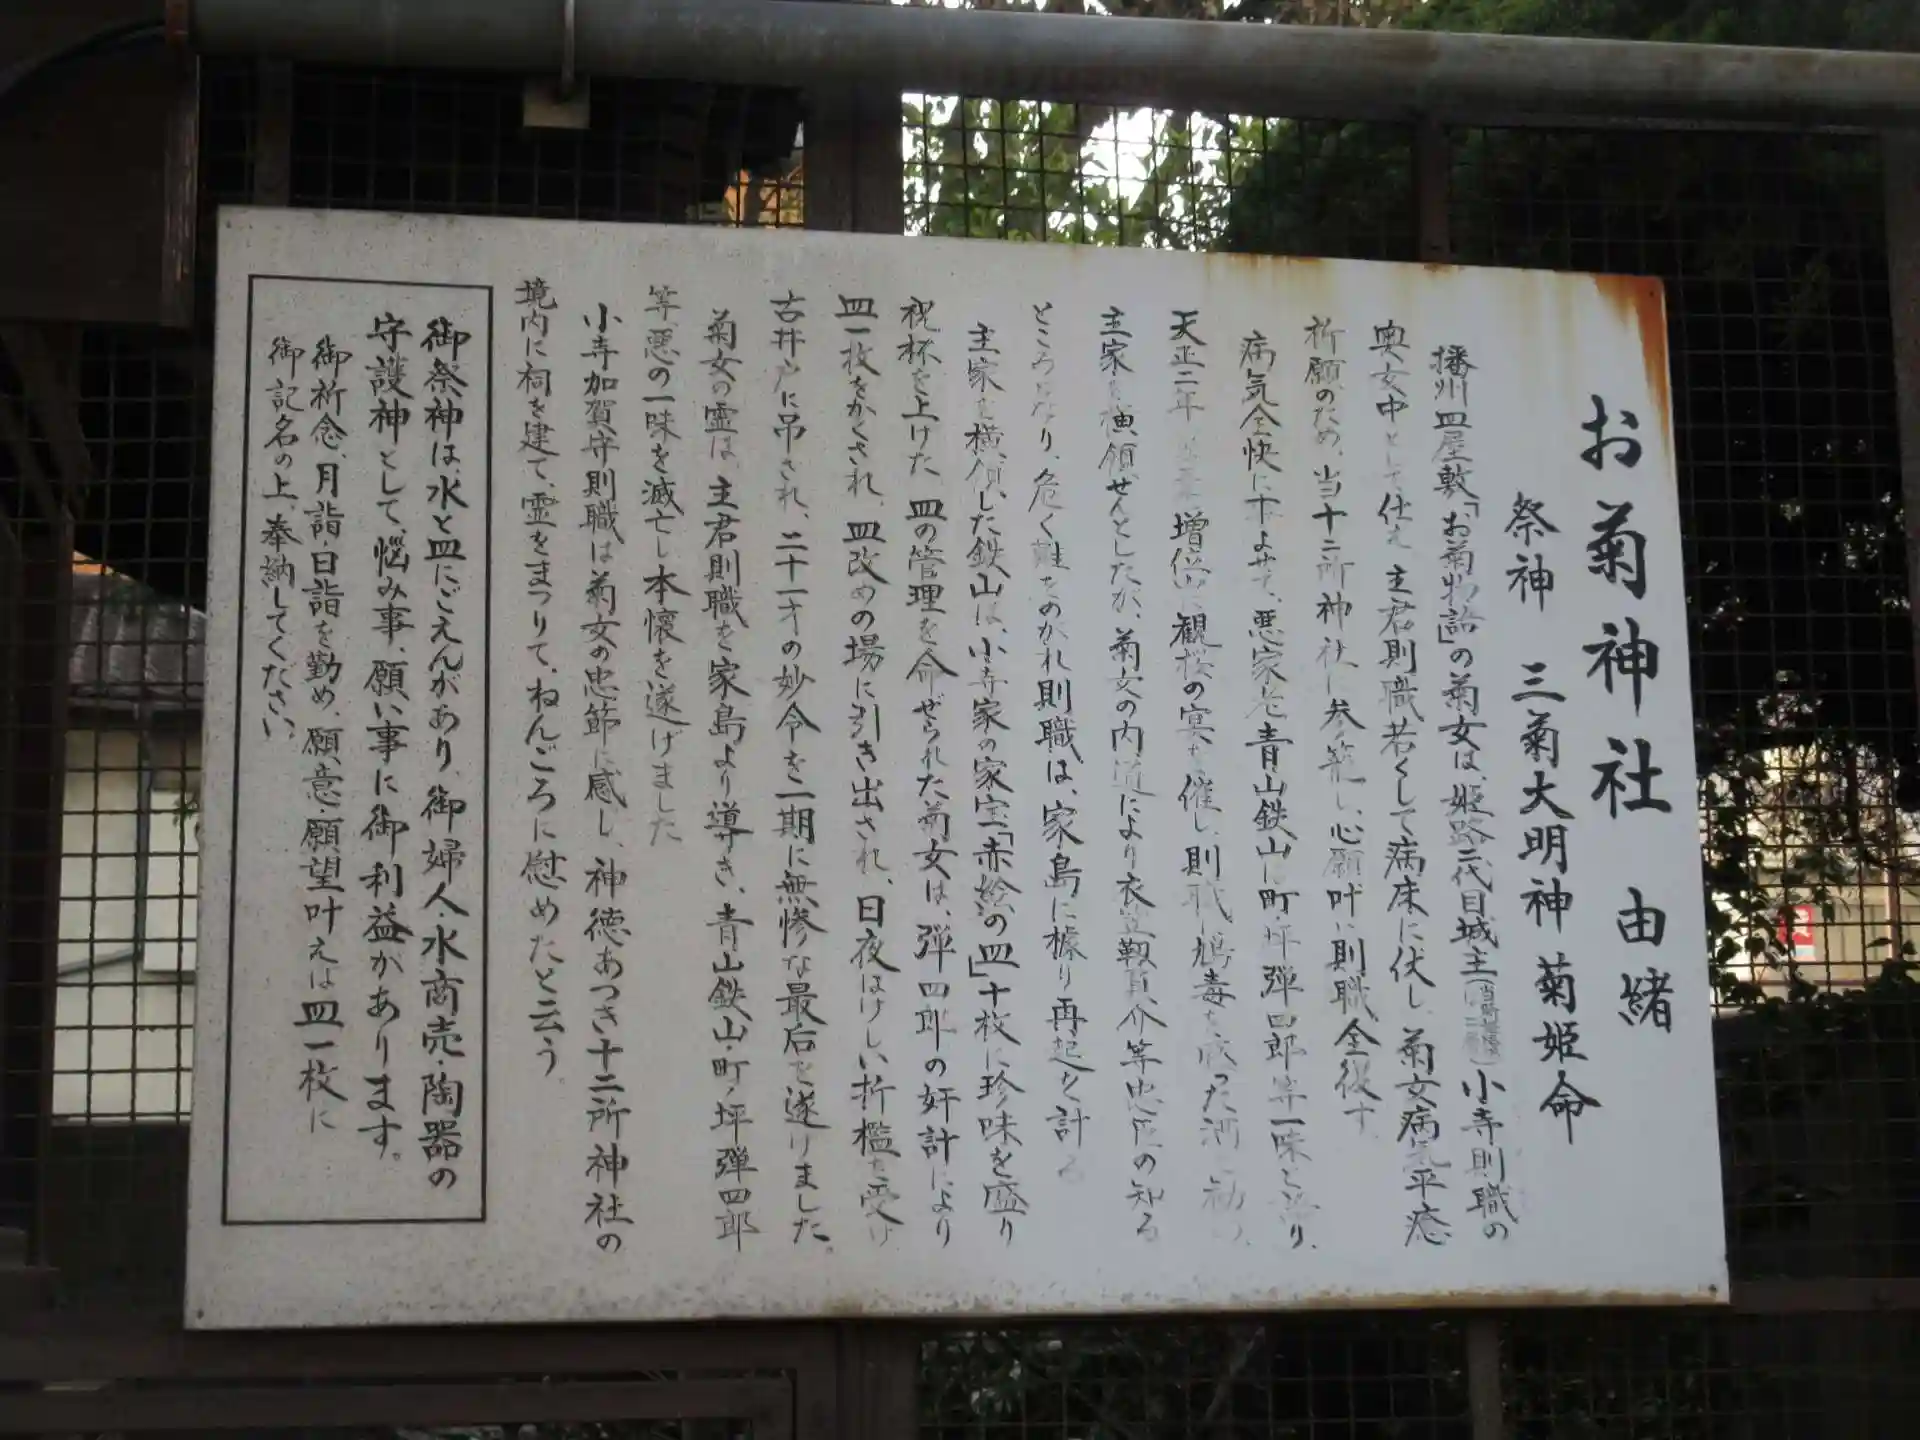 お菊神社 由緒
祭神 三菊大明神 菊姫命
播州皿屋敷「お菊物語」の菊女は、姫路二代目城主小寺則職の
奥女中として仕え 主君則職若くして病床に伏し、菊女病気平癒
祈願のため、当十二所神社に参籠し、心願叶い則職全復す。
病気全快に下よせて、悪家老青山鉄山は町ノ坪弾四郎等一味と り、
天正二年 増位山に観桜の宴を催し、則職に鴆毒を盛った酒を勧め、
主家を横領せんとしたが、菊女の内通により衣笠靱負介等忠臣の知る
ところとなり、危く難をのがれ則職は、家島に據り再起を計る
主家を横領した鉄山は、小寺家の家宝「赤絵の皿」十枚に珍味を盛り
祝杯を上げた。皿の管理を命ぜられた菊女は、弾四郎の奸計により
皿一枚をかくされ、皿改めの場に引き出され、日夜はげしい折檻を受け
古井戸に吊され、二十一才の妙令を一期に無惨な最后を遂げました。
菊女の霊は、主君則職を家島より導き、青山鉄山・町ノ坪弾四郎
等、悪の一味を滅亡し本懐を遂げました
小寺加賀守則職は菊女の忠節に感し、神徳あつき十二所神社の
境内に祠を建て、霊をまつりて、ねんごろに慰めたと云う。
御祭神は、水と皿にごえんがあり、御婦人・水商売・陶器の
守護神として、悩み事、願い事に御利益があります。
御祈念、月詣・日詣を勤め、願意・願望叶えは皿一枚に
御記名の上、奉納してください